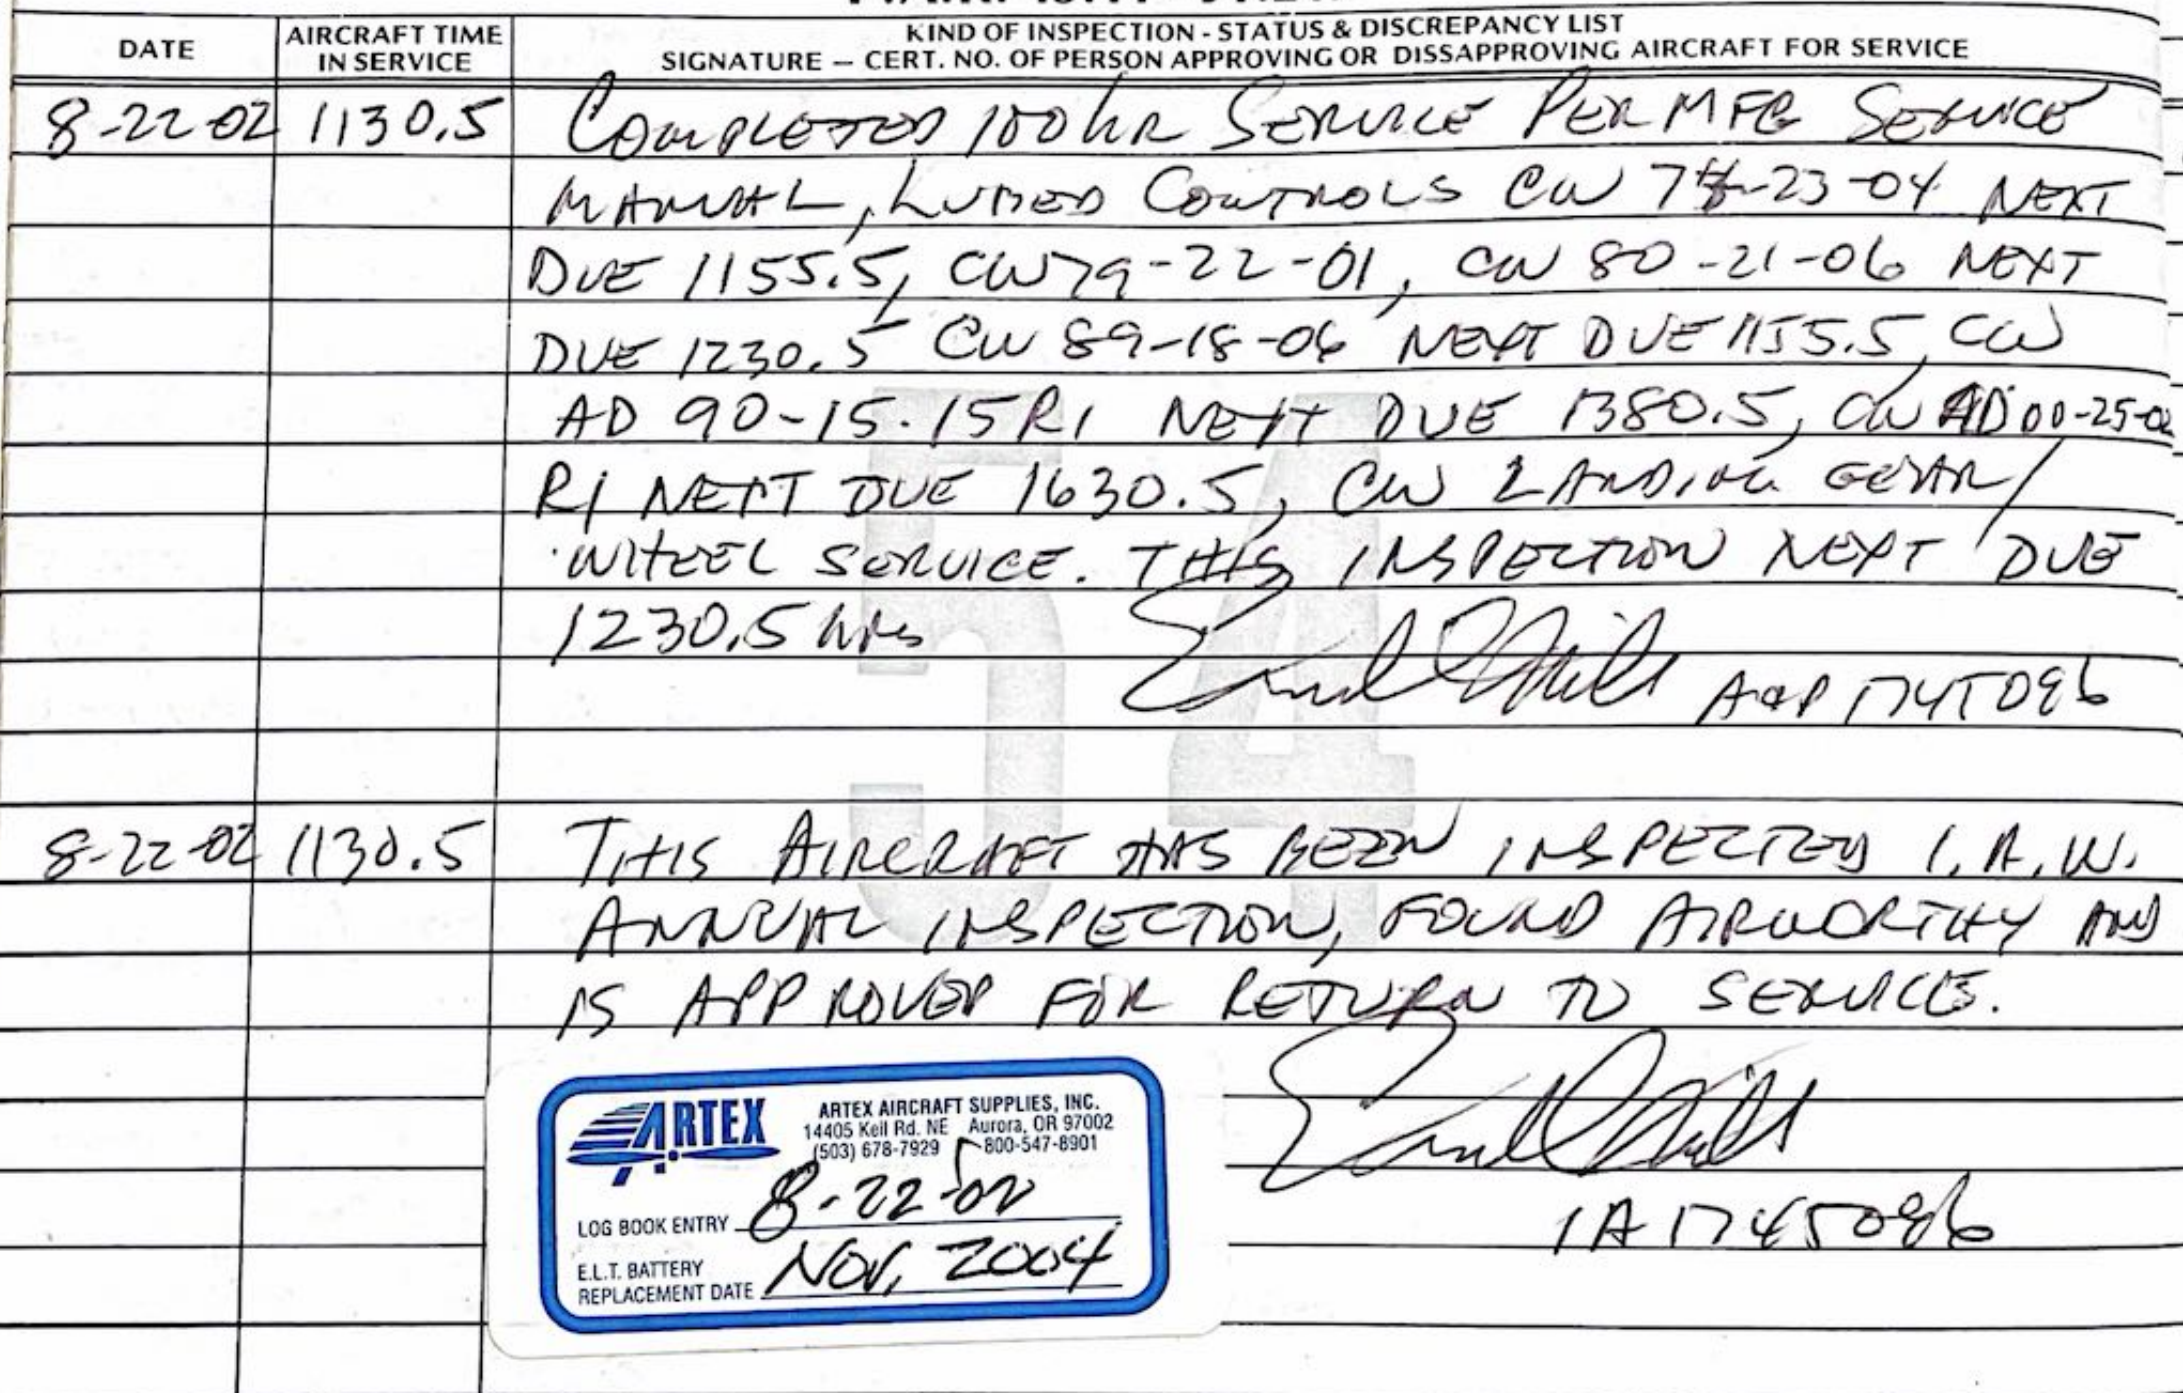 DATE
AIRCRAFT TIME
IN SERVICE
KIND OF INSPECTION - STATUS & DISCREPANCY LIST
SIGNATURE — CERT. NO. OF PERSON APPROVING OR DISSAPPROVING AIRCRAFT FOR SERVICE
8-22-02 1130.5 COMPLETED 100 hR SERVICE PER MFG SERVICE
MANUAL, LUBED CONTROLS CW -23-04 NEXT
DUE 1155.5, CW 79-22-01, CW 80-21-06 NEXT
DUE 1230.5 CW 89-18-06 NEXT DUE 1155.5, CW
AD 90-15-15R1 NEXT DUE 1380.5, CW AD 00-25-02
R1 NEXT DUE 1630.5, CW LANDING GEAR/
WHEEL SERVICE. THIS INSPECTION NEXT DUE
1230.5 hrs
A&P 1745086
54
8-22-02 1130.5 THIS AIRCRAFT HAS BEEN INSPECTED I.A.W.
ANNUAL INSPECTION, FOUND AIRWORTHY AND
IS APPROVED FOR RETURN TO SERVICE.
IA 1745086
ARTEX
ARTEX AIRCRAFT SUPPLIES, INC.
14405 Keil Rd. NE Aurora, OR 97002
(503) 678-7929 800-547-8901
LOG BOOK ENTRY 8-22-02
E.L.T. BATTERY
REPLACEMENT DATE NOV, 2004